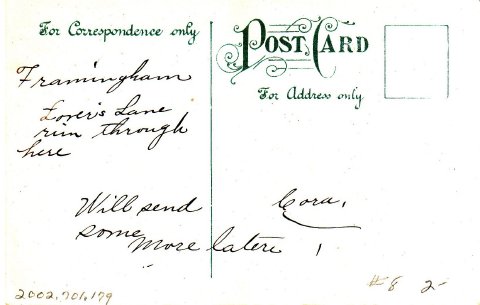 For Correspondence only
POST CARD
For Address only.
Framingham
Lover's Lane
rim through
here
Will send
some
More latere !
Cora,
2002.701.179
#8 2-